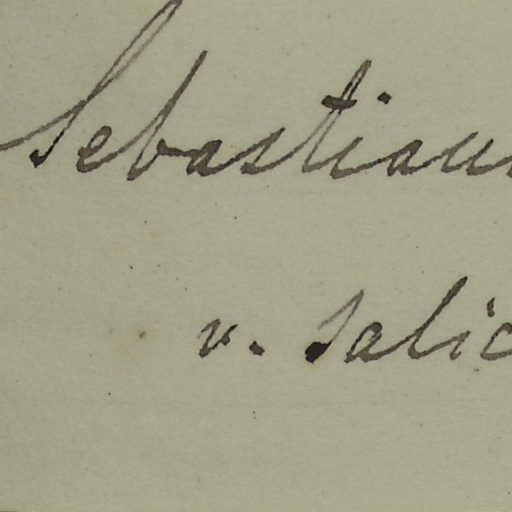 Sebastian
v. salic